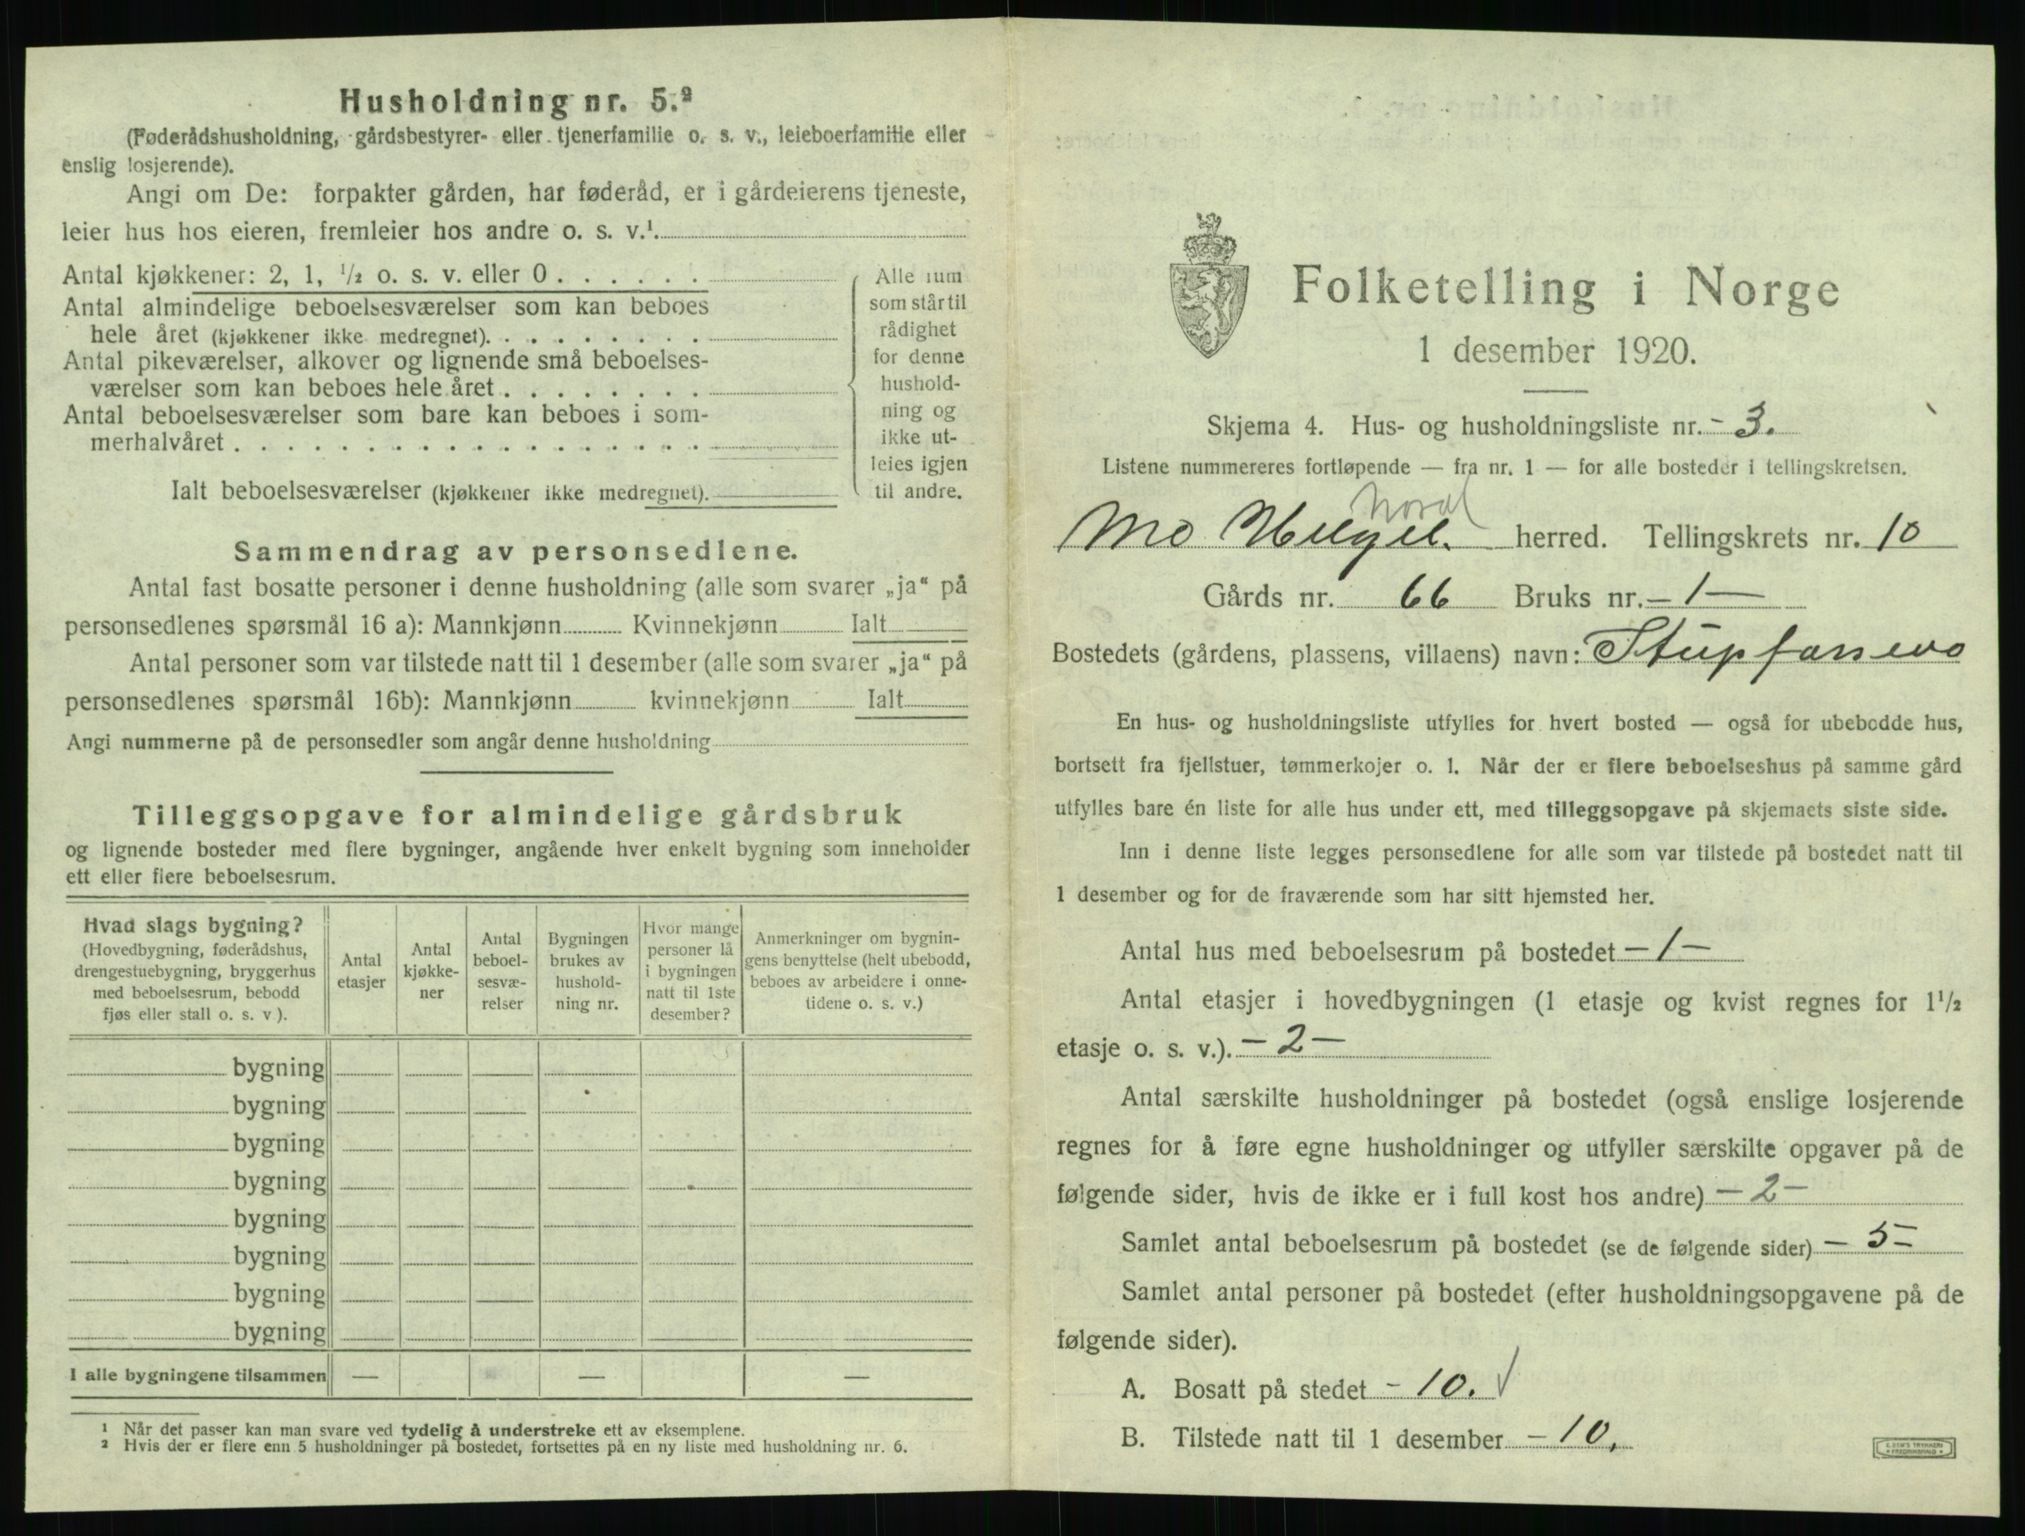 Husholdning nr. 5.²
(Føderådshusholdning, gårdsbestyrer- eller tjenerfamilie o. s. v., leieboerfamilie eller
enslig losjerende).
Angi om De: forpakter gården, har føderåd, er i gårdeierens tjeneste,
leier hus hos eieren, fremleier hos andre o. s. v.¹.
Antal kjøkkener: 2, 1, ½ o. s. v. eller 0 . . . . . .
Antal almindelige beboelsesværelser som kan beboes
hele året (kjøkkener ikke medregnet). . . . . . . . .
Antal pikeværelser, alkover og lignende små beboelses-
værelser som kan beboes hele året . . . . . . . .
Antal beboelsesværelser som bare kan beboes i som-
merhalvåret . . . . . . . . . . . . . . . . . .
Ialt beboelsesværelser (kjøkkener ikke medregnet).
Alle rum
som står til
rådighet
for denne
hushold-
ning og
ikke ut-
leies igjen
til andre.
Sammendrag av personsedlene.
Antal fast bosatte personer i denne husholdning (alle som svarer „ja“ på
personsedlenes spørsmål 16 a): Mannkjønn Kvinnekjønn Ialt
Antal personer som var tilstede natt til 1 desember (alle som svarer „ja“ på
personsedlenes spørsmål 16b): Mannkjønn kvinnekjønn Ialt
Angi nummerne på de personsedler som angår denne husholdning
Tilleggsopgave for almindelige gårdsbruk
og lignende bosteder med flere bygninger, angående hver enkelt bygning som inneholder
ett eller flere beboelsesrum.
Hvad slags bygning?
(Hovedbygning, føderådshus,
drengestuebygning, bryggerhus
med beboelsesrum, bebodd
fjøs eller stall o. s. v ).
Antal
etasjer
Antal
kjøkke-
ner
Antal
beboel-
sesvæ-
relser
Bygningen
brukes av
hushold-
ning nr.
Hvor mange
personer lå
i bygningen
natt til 1ste
desember?
Anmerkninger om bygnin-
gens benyttelse (helt ubebodd,
beboes av arbeidere i onne-
tidene o. s. v.)
bygning
bygning
bygning
bygning
bygning
bygning
bygning
bygning
I alle bygningene tilsammen — — —
¹ Når det passer kan man svare ved tydelig å understreke ett av eksemplene.
² Hvis der er flere enn 5 husholdninger på bostedet, fortsettes på en ny liste med husholdning nr. 6.
Folketelling i Norge
1 desember 1920.
Skjema 4. Hus- og husholdningsliste nr. - 3.
Listene nummereres fortløpende — fra nr. 1 — for alle bosteder i tellingskretsen.
Nord
Mo Helgel. herred. Tellingskrets nr. 10
Gårds nr. 66 Bruks nr. - 1 -
Bostedets (gårdens, plassens, villaens) navn: Stupfossmo
En hus- og husholdningsliste utfylles for hvert bosted — også for ubebodde hus,
bortsett fra fjellstuer, tømmerkojer o. l. Når der er flere beboelseshus på samme gård
utfylles bare én liste for alle hus under ett, med tilleggsopgave på skjemaets siste side.
Inn i denne liste legges personsedlene for alle som var tilstede på bostedet natt til
1 desember og for de fraværende som har sitt hjemsted her.
Antal hus med beboelsesrum på bostedet - 1 -
Antal etasjer i hovedbygningen (1 etasje og kvist regnes for 1½
etasje o. s. v.). - 2 -
Antal særskilte husholdninger på bostedet (også enslige losjerende
regnes for å føre egne husholdninger og utfyller særskilte opgaver på de
følgende sider, hvis de ikke er i full kost hos andre) - 2 -
Samlet antal beboelsesrum på bostedet (se de følgende sider) - 5 -
Samlet antal personer på bostedet (efter husholdningsopgavene på de
følgende sider).
A. Bosatt på stedet - 10. √
B. Tilstede natt til 1 desember - 10.